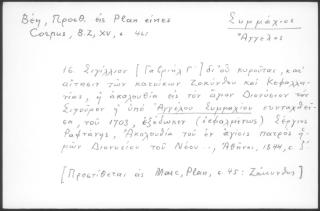 Βέη, Προσθ. εἰς Plan eines
Corpus, B.Z, XV, σ. 461
Συμμάχιος
Ἄγγελος
16. Σιγίλλιον [Γαβριὴλ Γ΄] δι' οὗ κυροῦται, κατ'
αἴτησιν τῶν κατοίκων Ζακύνθου καὶ Κεφαλλη-
νίας, ἡ ἀκολουθία εἰς τὸν ἅγιον Διονύσιον τὸν
Σιγοῦρον ἡ ὑπὸ Ἀγγέλου Συμμαχίου συνταχθεῖ-
σα, τοῦ 1703, ἐξέδωκεν (ἐσφαλμένως) Σέργιος
Ραφτάνης, Ἀκολουθία τοῦ ἐν ἁγίοις πατρὸς ἡ-
μῶν Διονυσίου τοῦ Νέου.., Ἀθῆναι, σ. 45
[Προστίθεται ἐς Marc, Plan, σ. 45: Ζάκυνθος]